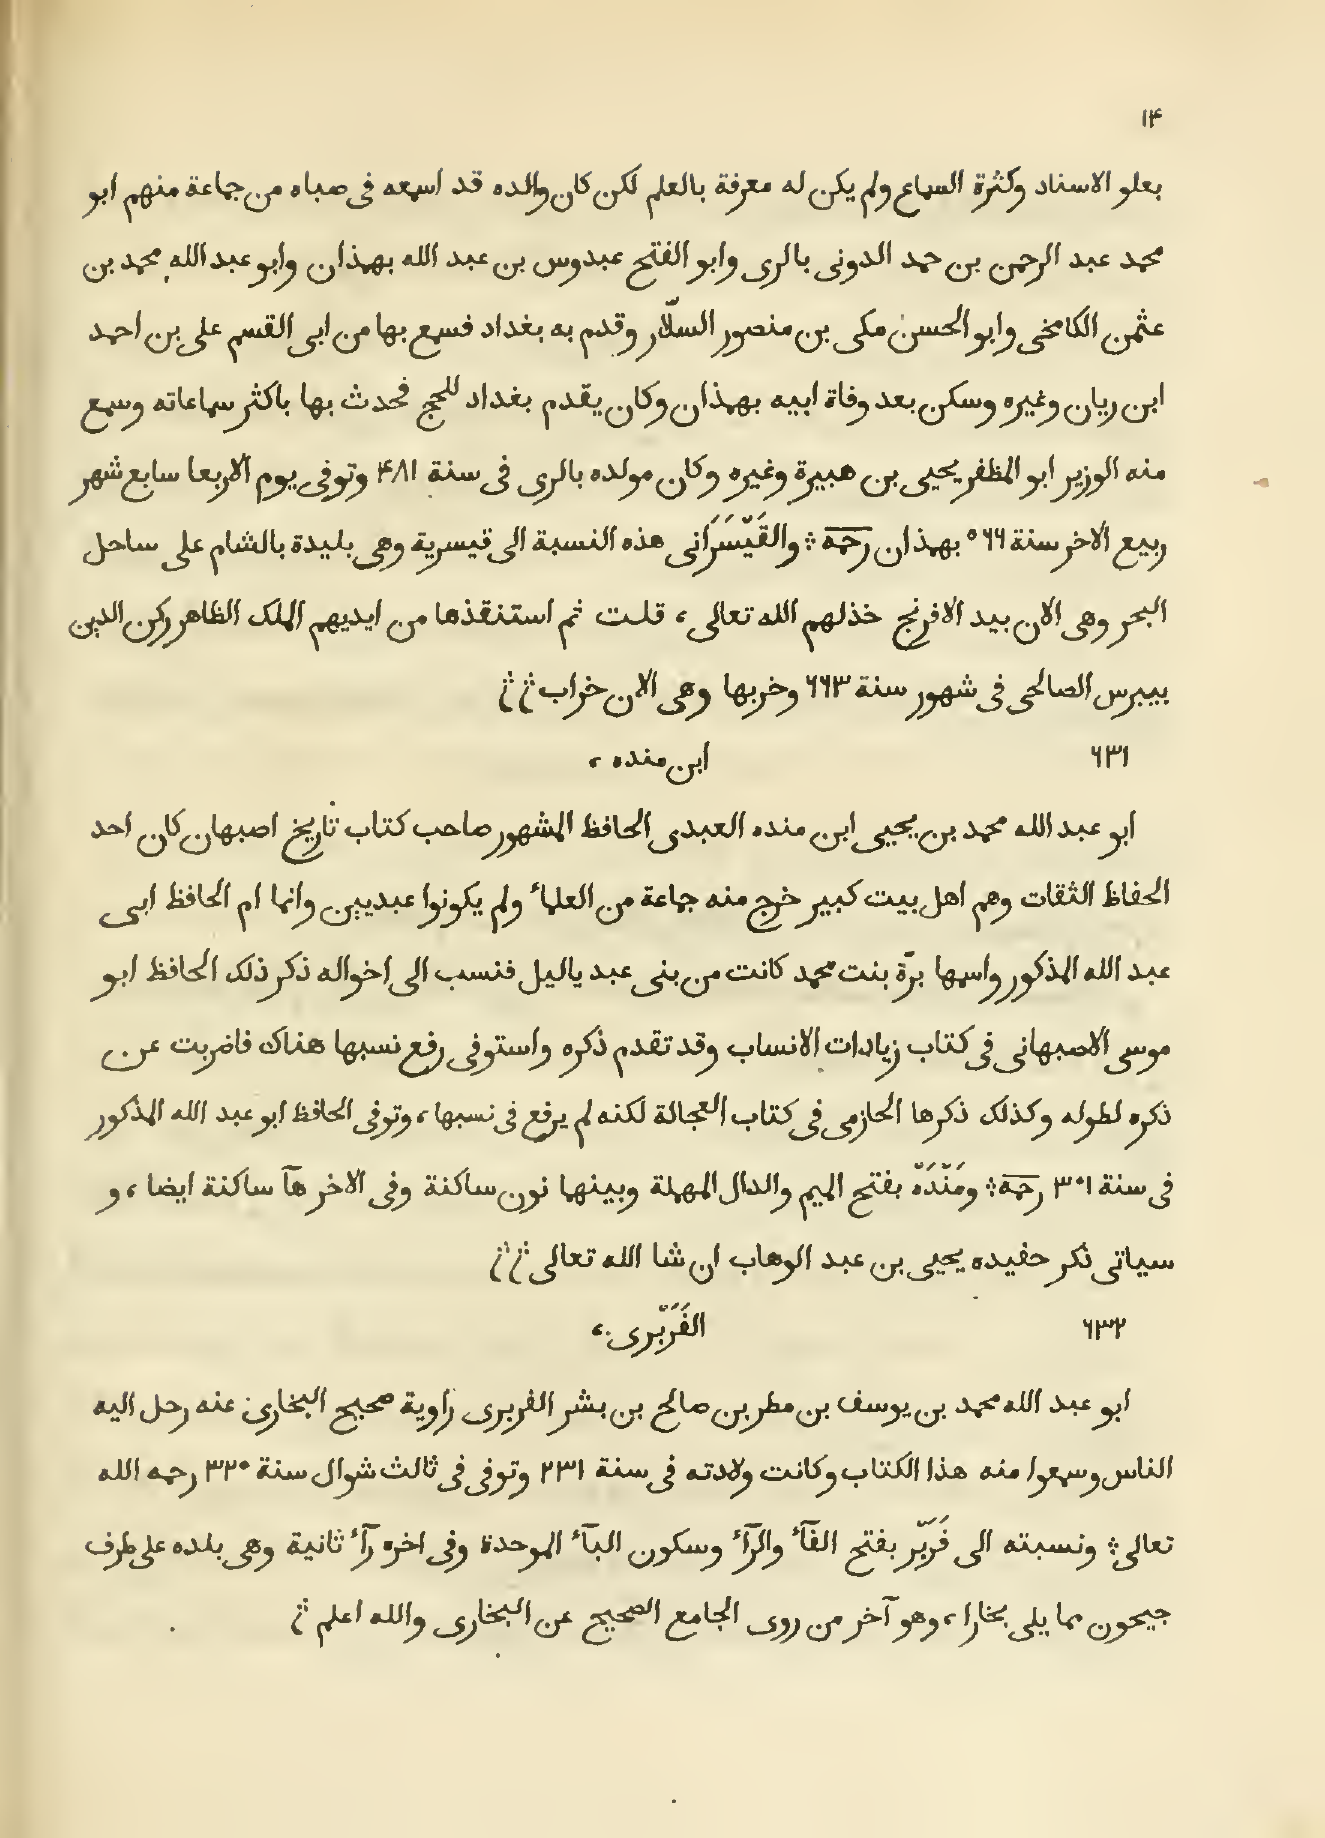 ۱۴
بعلو الاسناد وكثرة السماع ولم يكن له معرفة بالعلم لكن كان والده قد اسمعه فى صباه من جماعة منهم ابو
محمد عبد الرحمن بن حمد الدونى بالرى وابو الفتح عبدوس بن عبد الله بهمذان وابو عبد الله محمد بن
عثمن الكامخى وابو الحسن مكى بن منصور السلّار وقدم به بغداد فسمع بها من ابى القسم على بن احمد
ابن ريان وغيره وسكن بعد وفاة ابيه بهمذان وكان يقدم بغداد للحج فحدث بها باكثر سماعاته وسمع
منه الوزير ابو المظفر يحيى بن هبيرة وغيره وكان مولده بالرى فى سنة ۴۸۱ وتوفى يوم الاربعا سابع شهر
ربيع الاخر سنة ۵۶۶ بهمذان رحمه ؞ والقَيْسَرَانى هذه النسبة الى قيسرية وهى بليدة بالشام على ساحل
البحر وهى الان بيد الافرنج خذلهم الله تعالى، قلت ثم استنقذها من ايديهم الملك الظاهر ركن الدين
بيبرس الصالحى فى شهور سنة ۶۶۳ وخربها وهى الان خراب ؞ ؞
۶۳۱ ابن منده ،
ابو عبد الله محمد بن يحيى ابن منده العبدى الحافظ المشهور صاحب كتاب تاريخ اصبهان كان احد
الحفاظ الثقات وهم اهل بيت كبير خرج منه جماعة من العلماء ولم يكونوا عبديين وانما ام الحافظ ابى
عبد الله المذكور واسمها برّة بنت محمد كانت من بنى عبد ياليل فنسب الى اخواله ذكر ذلك الحافظ ابو
موسى الاصبهانى فى كتاب زيادات الانساب وقد تقدم ذكره واستوفى رفع نسبها هناك فاضربت عن
ذكره لطوله وكذلك ذكرها الحازمى فى كتاب العجالة لكنه لم يرفع فى نسبها، وتوفى الحافظ ابو عبد الله المذكور
فى سنة ۳۰۱ رحمه ؞ ومَنْدَهْ بفتح الميم والدال المهملة وبينهما نون ساكنة وفى الاخر هآ ساكنة ايضا، و
سياتى ذكر حفيده يحيى بن عبد الوهاب ان شا الله تعالى ؞ ؞
۶۳۲ الفَرَبْرى ،
ابو عبد الله محمد بن يوسف بن مطر بن صالح بن بشر الفربرى راوية صحيح البخارى عنه رحل اليه
الناس وسمعوا منه هذا الكتاب وكانت ولادته فى سنة ۲۳۱ وتوفى فى ثالث شوال سنة ۳۲۰ رحمه الله
تعالى ؞ ونسبته الى فَرَبْر بفتح الفآء والرآء وسكون البآء الموحدة وفى اخره رآء ثانية وهى بلده على طرف
جيحون مما يلى بخارا، وهو آخر من روى الجامع الصحيح عن البخارى والله اعلم ؞